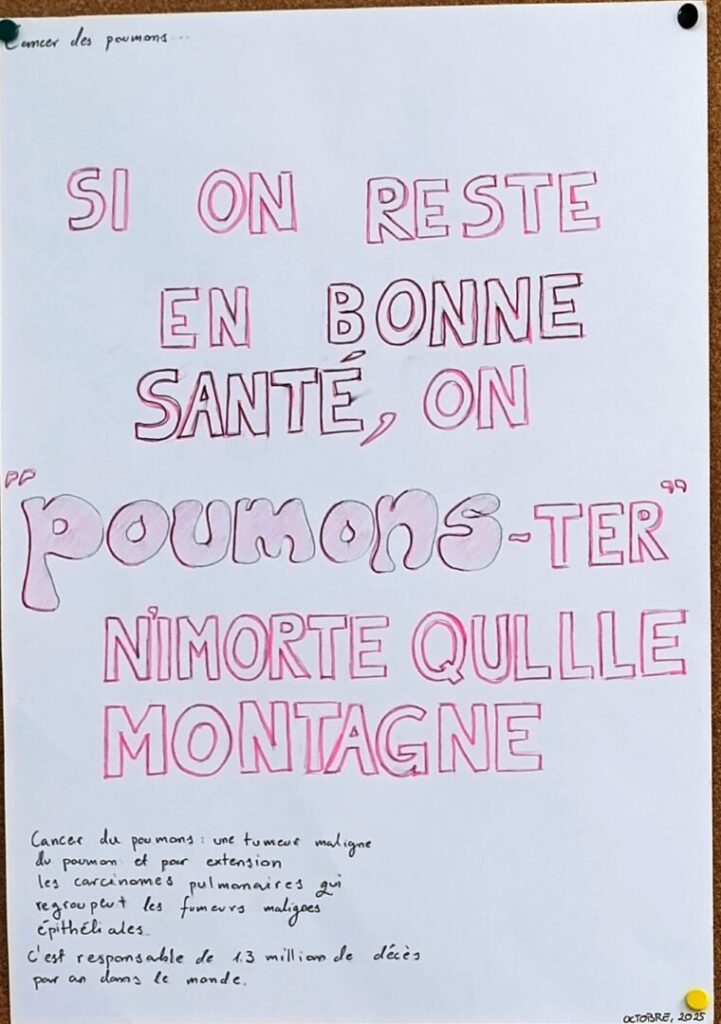 Cancer des poumons...
SI ON RESTE
EN BONNE
SANTÉ, ON
"poumons-TER"
N'IMORTE QULLLE
MONTAGNE
Cancer du poumons : une tumeur maligne
du poumon et par extension
les carcinomes pulmonaires qui
regroupent les fumeurs malignes
épithéliales.
C'est responsable de 1.3 million de décès
par an dans le monde.
OCTOBRE, 2025